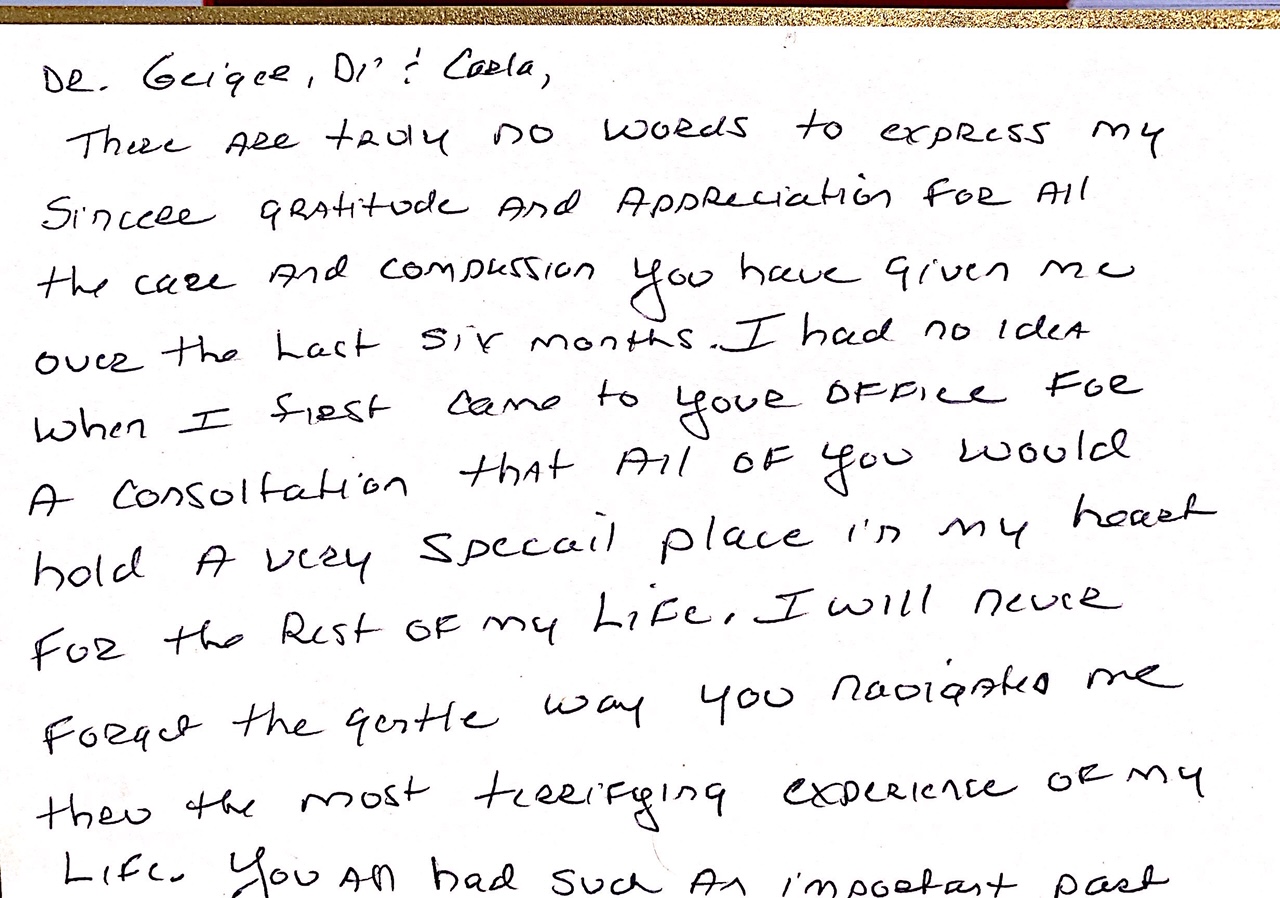 Dr. Geiger, Di & Carla,
There are truly no words to express my
sincere gratitude and appreciation for all
the care and compassion you have given me
over the last six months. I had no idea
when I first came to your office for
a consoltation that all of you would
hold a very specail place in my heart
for the rest of my life. I will never
forget the gentle way you navigated me
thru the most terrifying experience of my
life. You all had such an important part